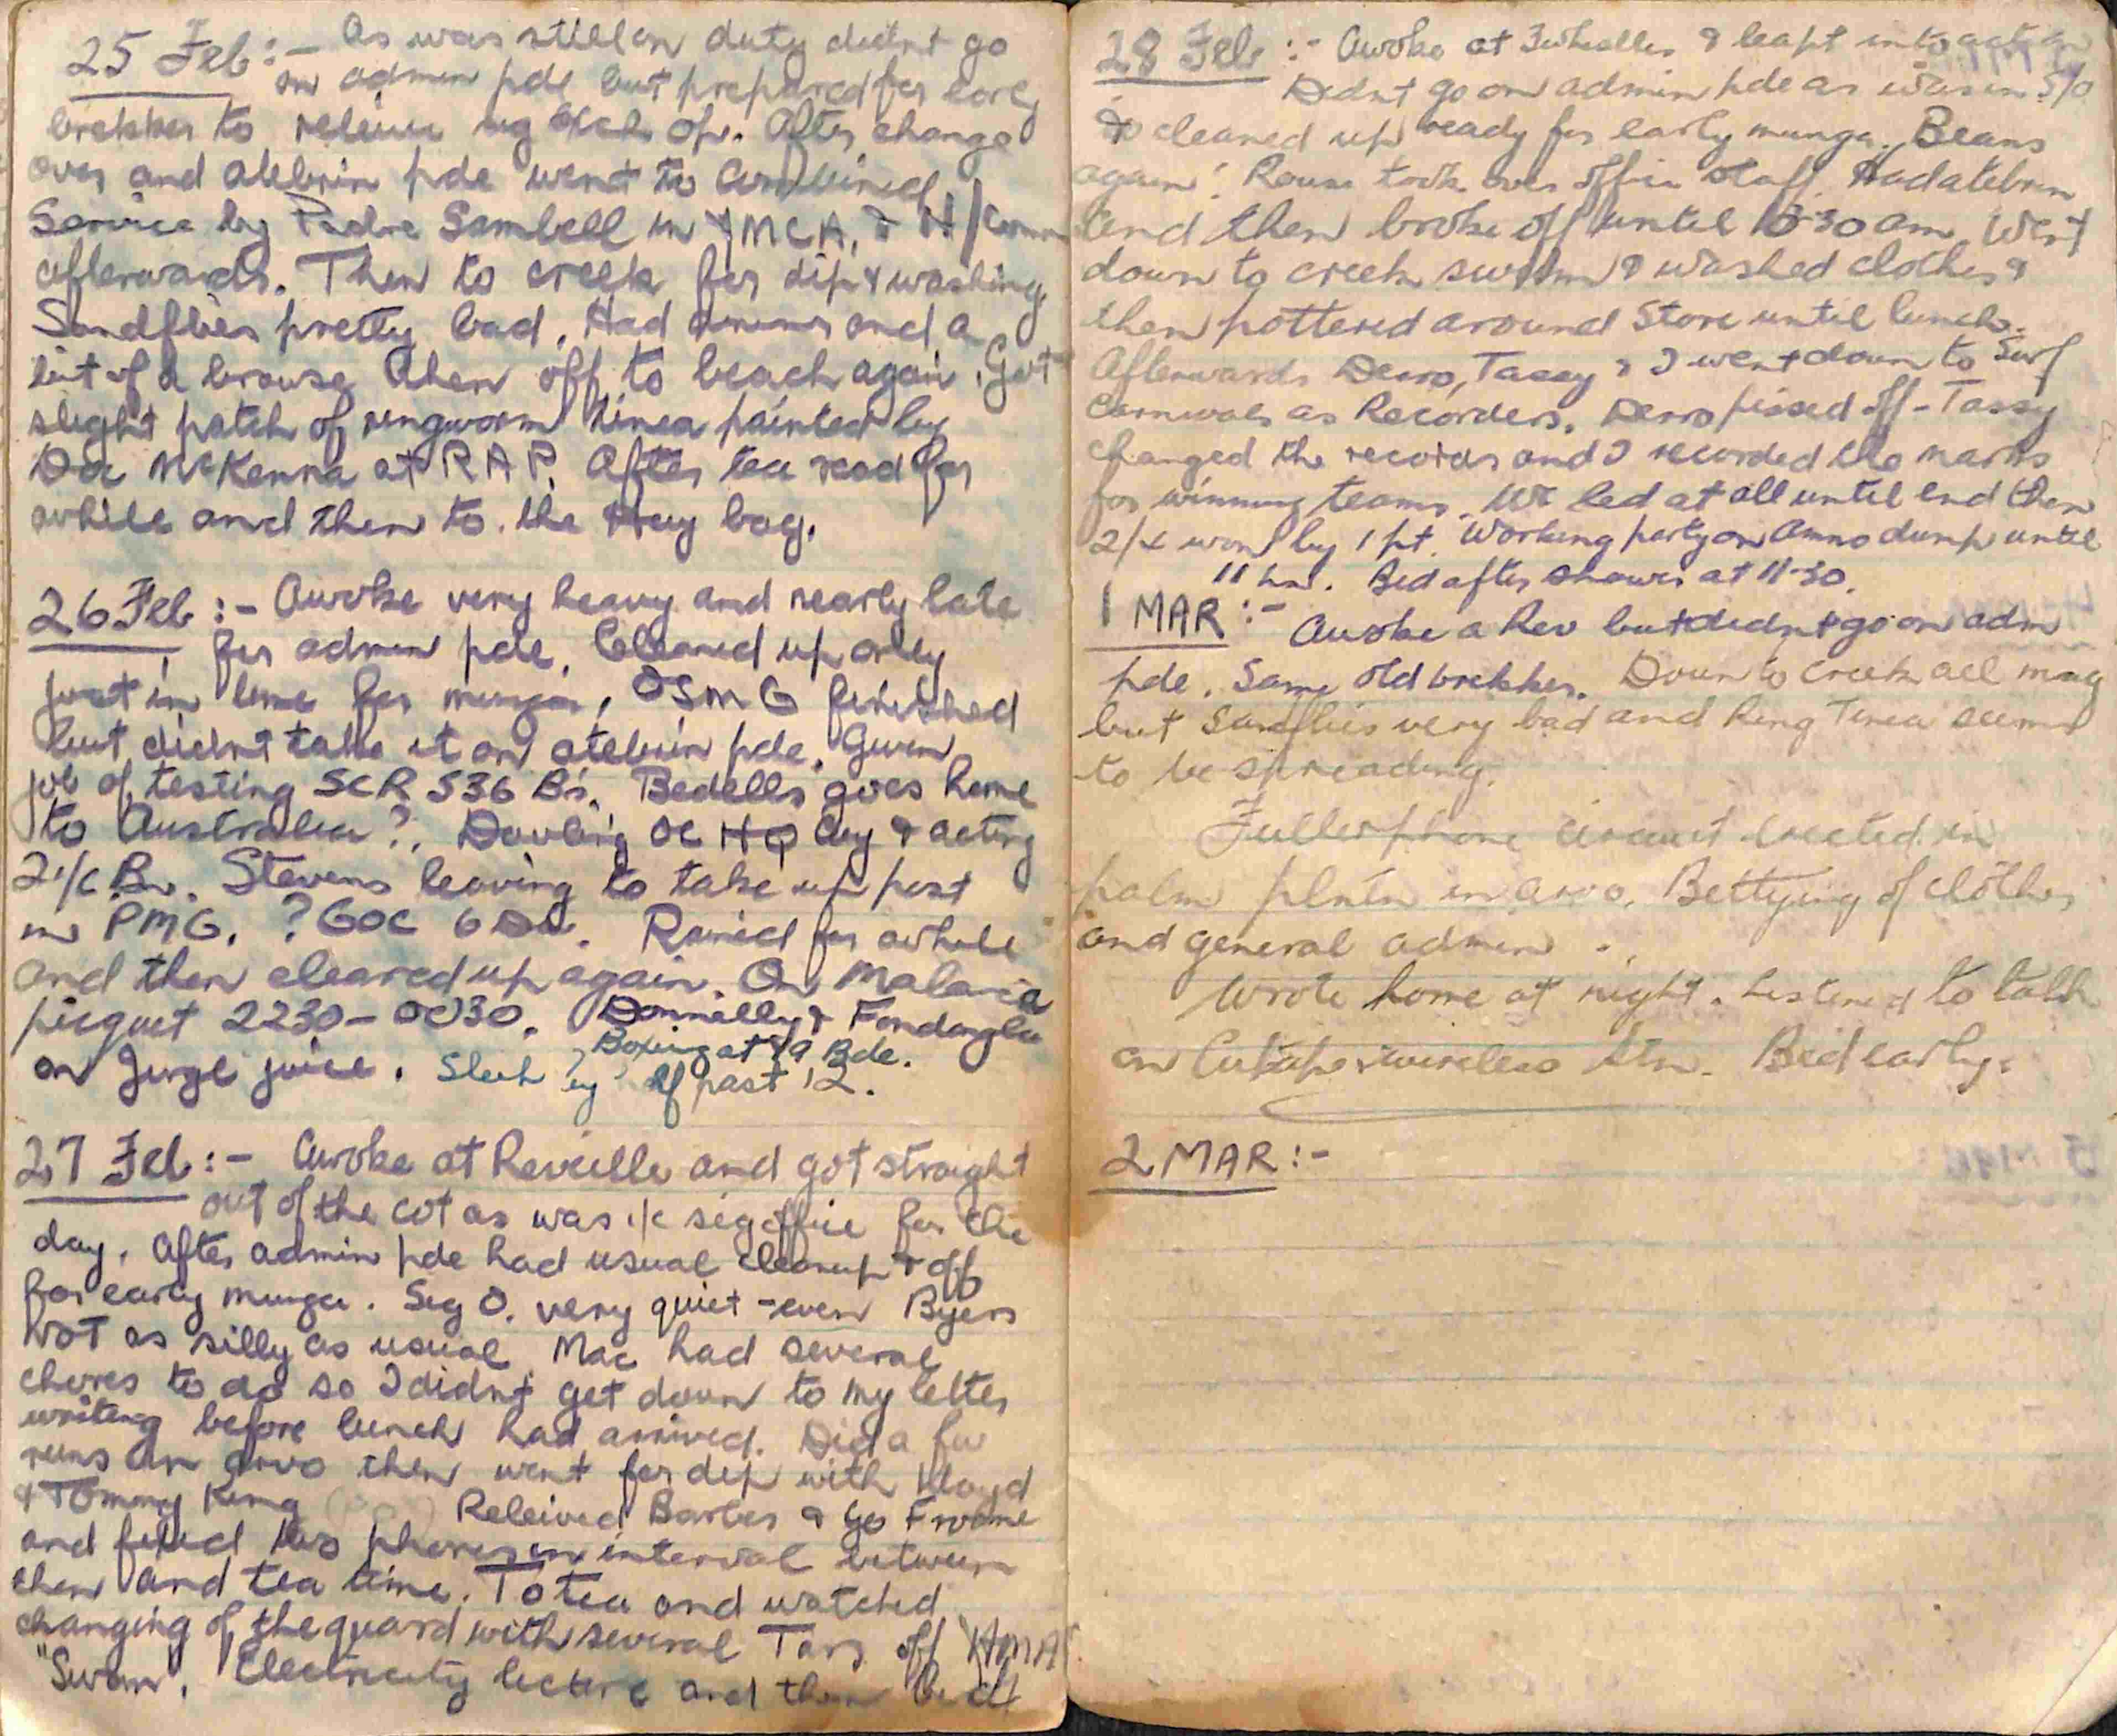 25 Feb :- As was still on duty didnt go
on admin pde but prepared for early
brekker to releive sig exch op. After change
over and atebrin pde went to Combined
Service by Padre Sambell in YMCA, & H/Comm
afterwards. Then to creek for dip & washing
Sandflies pretty bad. Had and a
bit of a browse then off to beach again. Got
slight patch of ringworm tinea painted by
Doc McKenna at R A P. After tea read for
while and then to the Hay bag.
26 Feb :- Awoke very heavy and nearly late
for admin pde. Cleaned up only
just in time for munga, OSMG finished
but didnt take it on atebrin pde. Given
job of testing SCR 536 B's. Bedells goes home
to Australia?. Dowling OC HQ Coy & acting
2 i/c Bn. Stevens leaving to take up post
in PMG. ? GOC 6 Div. Rained for awhile
and then cleared up again. On Malaria
picquet 2230 - 0030. Donnelly &
on Jungle juice. Boxing at 19 Bde.
Sleep by past 12.
27 Feb :- Awoke at Reveille and got straight
out of the cot as was i/c sig office for the
day. After admin pde had usual cleanup & off
for early munga. Sig O. very quiet - even Byers
not as silly as usual Mac had several
chores to do so I didnt get down to my letter
writing before lunch had arrived. Did a few
runs in arvo then went for dip with Lloyd
& Tommy King Releived Barber & Go Froome
and fixed two phones in interval between
then and tea time. To tea and watched
changing of the guard with several Tars off "HMAS
"Swan". Electricity lecture and then bed
28 Feb :- Awoke at 3 whistles & leapt into action
Didnt go on admin pde as was in S/O
& cleaned up ready for early munga. Beans
again! Rouse took over office staff. Had atebrin
and then broke off until 10-30 am Went
down to creek swim & washed clothes &
then pottered around Store until lunch.
Afterwards Derro, Tassy & I went down to Surf
Carnivals as Recorders. Derro pissed off - Tassy
changed the records and I recorded the marks
for winning teams. We led at all until end then
2/4 won by 1 pt. Working party on Ammo dump until
11 hrs. Bed after shower at 11-30.
1 MAR :- Awoke a Rev but didnt go on adm
pde. Same old brekker. Down to Creek all mng
but Sandflies very bad and Ring Tinea seems
to be spreading.
Fullerphone circuit erected in
palm plntn in arvo. Bettying of clothes
and general admin.
Wrote home at night. Listened to talk
on wireless stn. Bed early.
2 MAR :-